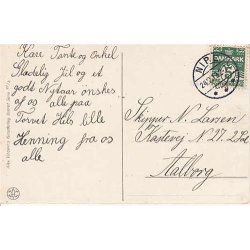 Kære Tante og Onkel
Glædelig Jul og et
godt Nytaar ønskes
af og alle paa
Torvet Hils lille
Henning fra os
alle
NIBE
DANMARK
Skipper N. Larsen
Kastevej N 27. 2 Sal
Aalborg